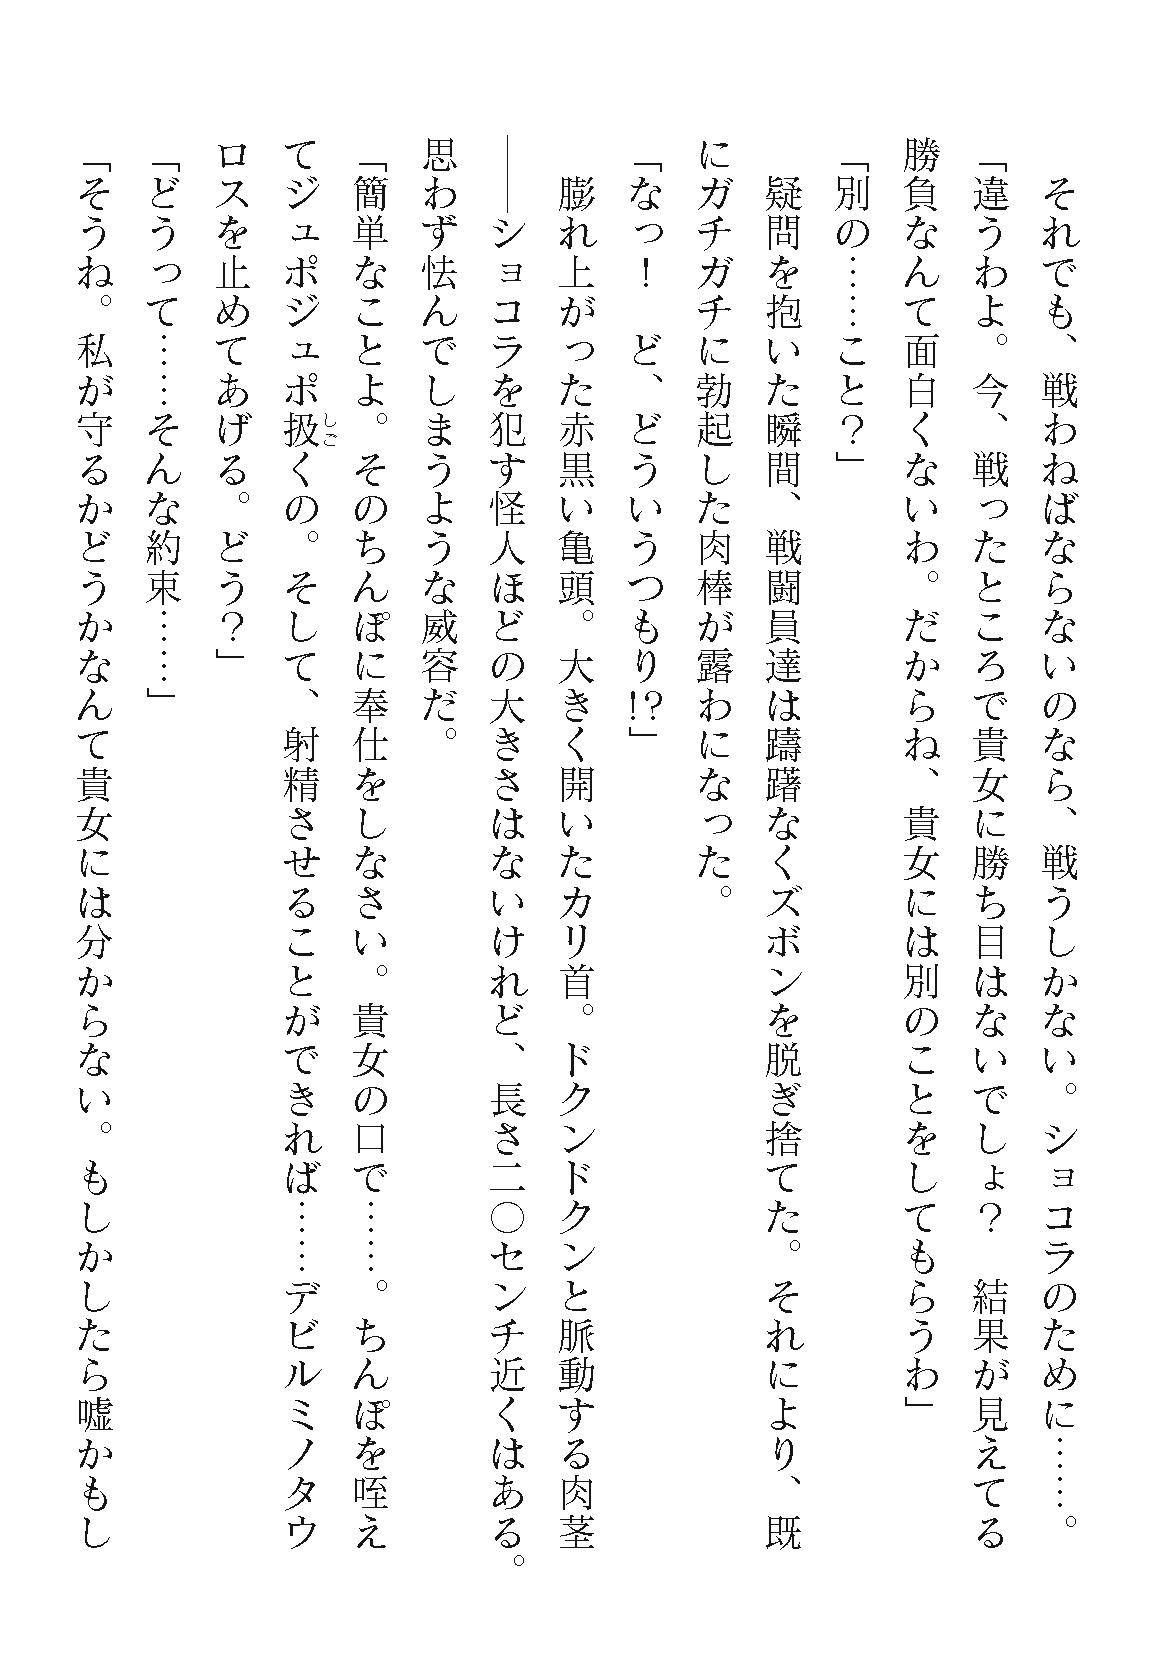 それでも、戦わねばならないのなら、戦うしかない。ショコラのために……。
「違うわよ。今、戦ったところで貴女に勝ち目はないでしょ？　結果が見えてる
勝負なんて面白くないわ。だからね、貴女には別のことをしてもらうわ」
「別の……こと？」
疑問を抱いた瞬間、戦闘員達は躊躇なくズボンを脱ぎ捨てた。それにより、既
にガチガチに勃起した肉棒が露わになった。
「なっ！　ど、どういうつもり!?」
膨れ上がった赤黒い亀頭。大きく開いたカリ首。ドクンドクンと脈動する肉茎
――ショコラを犯す怪人ほどの大きさはないけれど、長さ二〇センチ近くはある。
思わず怯んでしまうような威容だ。
「簡単なことよ。そのちんぽに奉仕をしなさい。貴女の口で……。ちんぽを咥え
てジュポジュポ扱くの。そして、射精させることができれば……デビルミノタウ
ロスを止めてあげる。どう？」
「どうって……そんな約束……」
「そうね。私が守るかどうかなんて貴女には分からない。もしかしたら嘘かもし